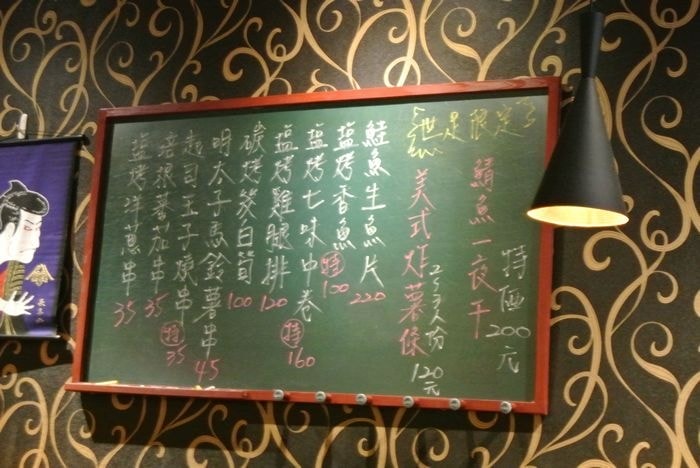 鯖魚一夜干
特価200元
美式炸薯條
2~3人份
120元
鮭魚生魚片220
鹽烤香魚特100
鹽烤七味中卷特160
鹽烤雞腿排120
碳烤筊白筍100
明太子馬鈴薯串45
起司玉子燒串特35
培根蕃茄串35
鹽烤洋蔥串35